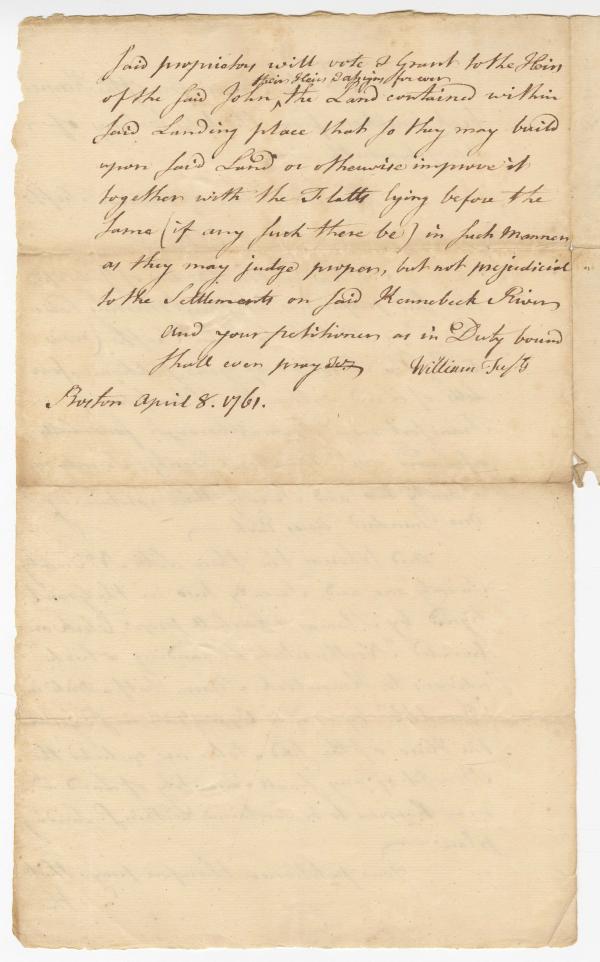 Said proprietors will vote & Grant to the Heirs
their Heirs & assigns for ever
of the said John ‸ the Land contained within
said Landing place that so they may build
upon said Land or otherwise improve it
together with the Flatts lying before the
same (if any such there be) in such Manner
as they may judge proper, but not prejudicial
to the Settlements on said Kennebeck River
and your petitioner as in Duty bound
shall ever pray &c.
William
Boston April 8. 1761.